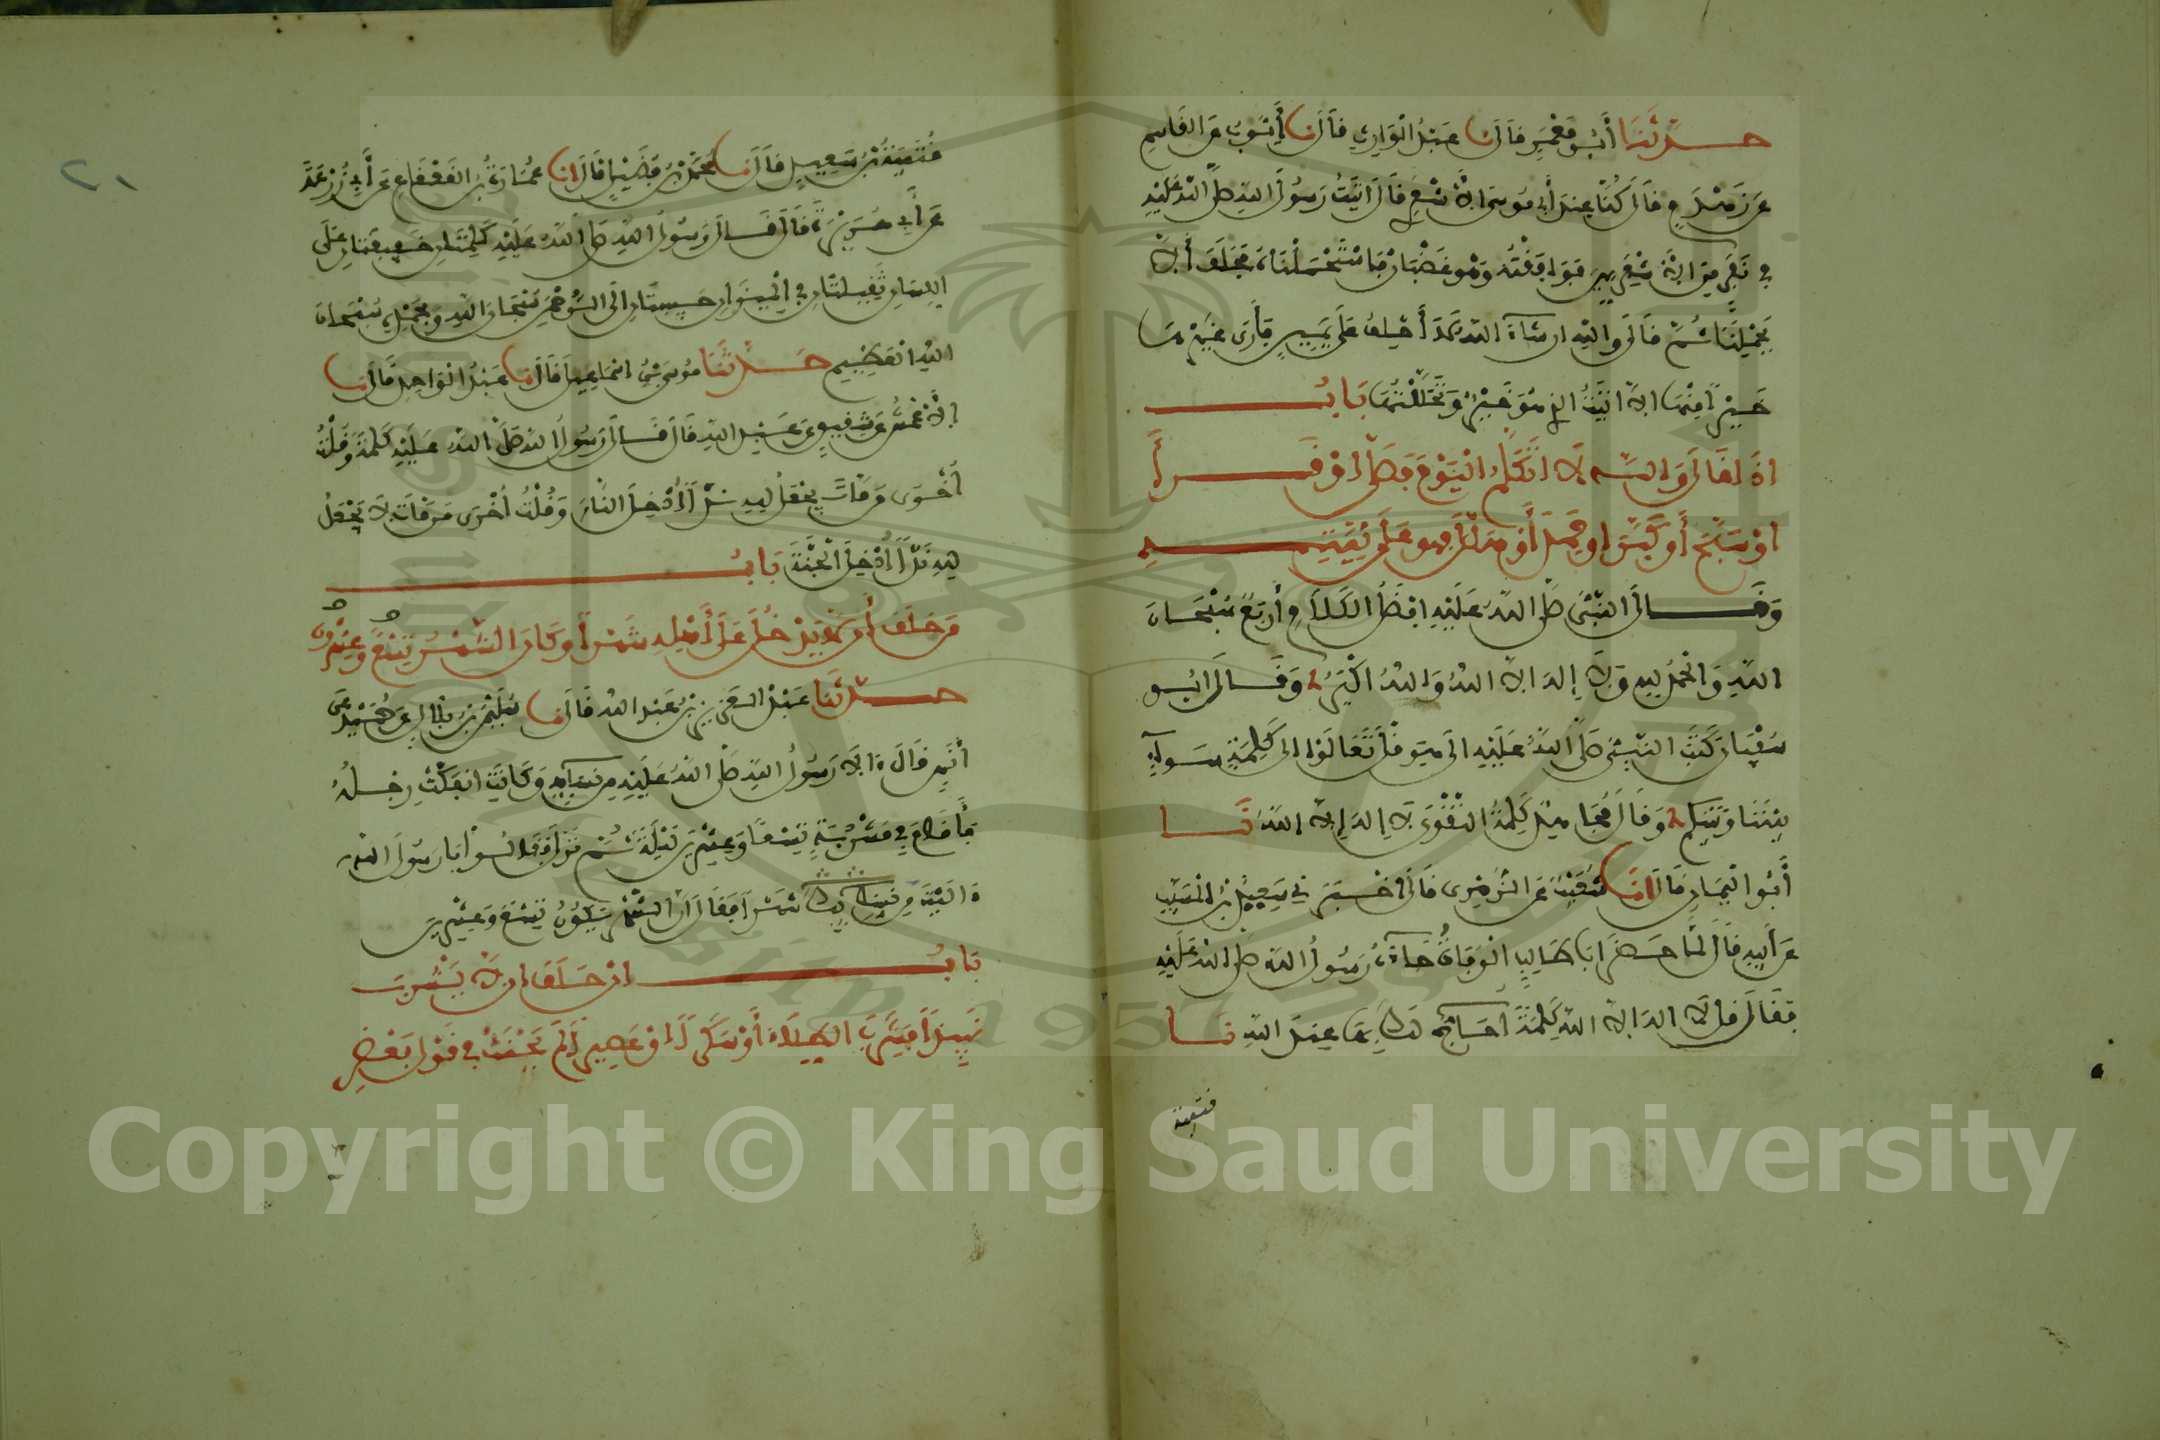 حدثنا أبو معمر قال نا عبد الوارث قال نا أيوب عن القاسم
عن زهدم قال كنا عند أبي موسى الأشعري قال أتيت رسول الله صلى الله عليه
في نفر من الأشعريين فوافقته وهو غضبان فاستحملناه فحلف ألا
يحملنا ثم قال والله إن شاء الله لا أحلف على يمين فأرى غيرها
خيرا منها إلا أتيت الذي هو خير وتحللتها باب
إذا قال والله لا أتكلم اليوم فصلى أو قرأ
أو سبح أو كبر أو حمد أو هلل فهو على نيته
وقال النبي صلى الله عليه أفضل الكلام أربع سبحان
الله والحمد لله ولا إله إلا الله والله أكبر وقال أبو
سفيان كتب النبي صلى الله عليه إلى هرقل تعالوا إلى كلمة سواء
بيننا وبينكم وقال مجاهد كلمة التقوى لا إله إلا الله نا
أبو اليمان قال أنا شعيب عن الزهري قال أخبرني سعيد بن المسيب
عن أبيه قال لما حضر أبا طالب الوفاة جاءه رسول الله صلى الله عليه
فقال قل لا إله إلا الله كلمة أحاج لك بها عند الله نا
قتيبة
٢١
قتيبة بن سعيد قال نا محمد بن فضيل قال نا عمارة بن القعقاع عن أبي زرعة
عن أبي هريرة قال قال رسول الله صلى الله عليه كلمتان خفيفتان على
اللسان ثقيلتان في الميزان حبيبتان إلى الرحمن سبحان الله وبحمده سبحان
الله العظيم حدثنا موسى بن إسماعيل قال نا عبد الواحد قال نا
الأعمش عن شقيق عن عبد الله قال قال رسول الله صلى الله عليه كلمة وقلت
أخرى من مات يجعل لله ندا أدخل النار وقلت أخرى من مات لا يجعل
لله ندا أدخل الجنة باب
من حلف أن لا يدخل على أهله شهرا وكان الشهر تسع وعشرون
حدثنا عبد العزيز بن عبد الله قال نا سليمن بن بلال عن حميد عن
أنس قال آلا رسول الله صلى الله عليه من نسائه وكانت انفكت رجله
فأقام في مشربة تسعا وعشرين ليلة ثم نزل فقالوا يا رسول الله
آليت شهرا فقال إن الشهر يكون تسع وعشرين
باب إن حلف أن لا يشرب
نبيذا فشرب الطلاء أو سكرا أو عصيرا لم يحنث في قول بعض